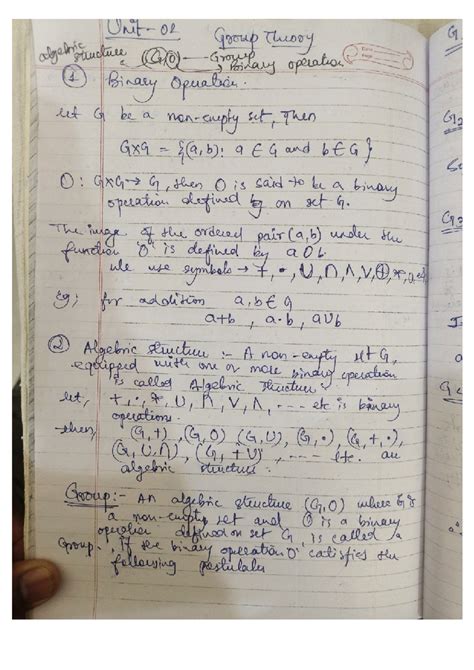 Unit-02
Group Theory
algebric structure (G,O) — Group
Binary operation
① Binary Operation.
let G be a non-empty set, Then
G×G = {(a,b): a ∈ G and b ∈ G}
O: G×G → G, then O is said to be a binary
operation defined on set G.
The image of the ordered pair (a,b) under the
function 'O' is defined by a O b.
we use symbols → +, •, U, ∩, Λ, V, ⊕, *,
eg: for addition a, b ∈ G
a+b, a·b, aUb
② Algebric structure :- A non-empty set G,
equipped with one or more binary operation
is called Algebric structure.
let, +, ·, *, U, ∩, V, Λ, --- etc is binary
operations.
then, (G,+), (G,O), (G,U), (G,•), (G,+,•),
(G,U,∩), (G,+U), --- etc. are
algebric structure.
Group:- An algebric structure (G,O) where G is
a non-empty set and O is a binary
operation defined on set G is called a
Group. If the binary operation 'O' satisfies the
following postulates
G
G2
G3
G4